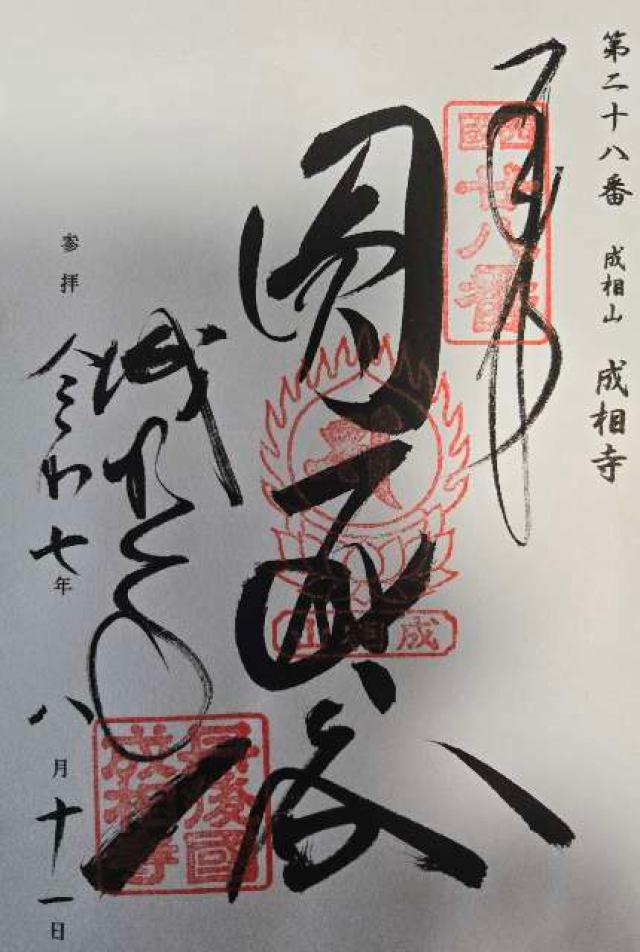 第二十八番 成相山 成相寺
奉拝
西國
廿八番
圓通殿
成相山
成相寺
丹後國
成相寺
参拝
令和七年 八月十一日